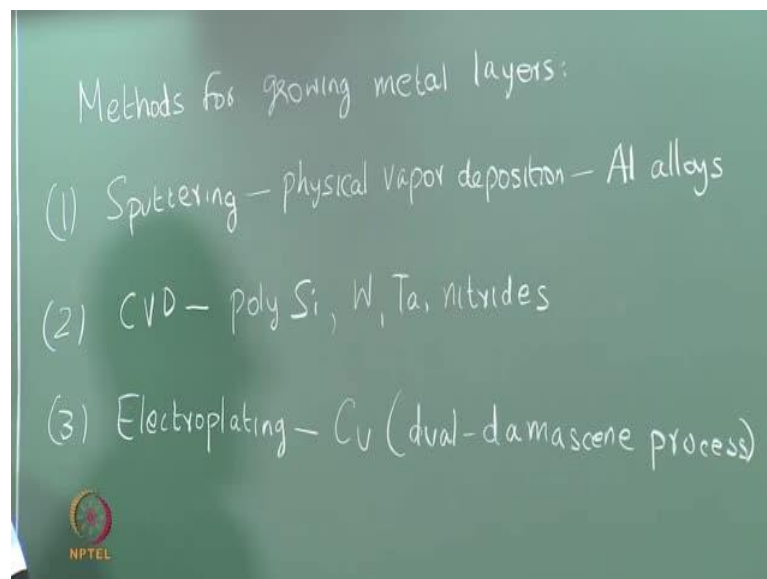 Methods for growing metal layers:
(1) Sputtering – physical vapor deposition – Al alloys
(2) CVD – poly Si, W, Ta, nitrides
(3) Electroplating – Cu (dual-damascene process)
NPTEL